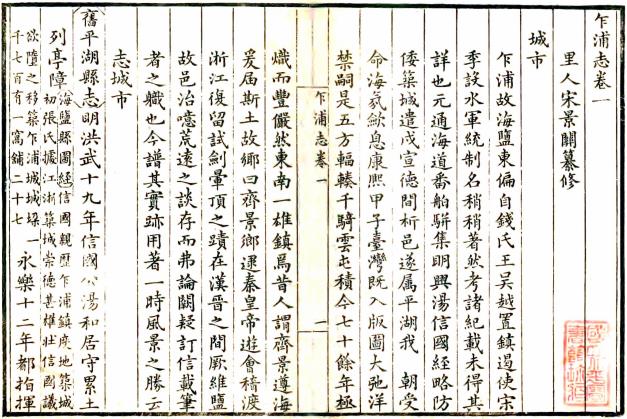 乍浦志卷一
里人宋景關纂修
城市
乍浦故海鹽東偏自錢氏王吳越置鎮遏使宋
季設水軍統制名稍稍著然考諸紀載未得其
詳也元通海道番舶駢集明興湯信國經略防
倭築城遣戍宣德間析邑遂属平湖我 朝受
命海氛歛息康熙甲子臺灣既入版圖大弛洋
禁嗣是五方輻輳千騎雲屯積今七十餘年極
乍浦志卷一 一
熾而豐儼然東南一雄鎮焉昔人謂齊景遵海
爰届斯土故鄉曰齊景鄉逮秦皇帝遊會稽渡
浙江復留試劍暈頂之蹟在漢晉之間厥維鹽
故邑治噫荒遠之談存而弗論闕疑訂信載筆
者之職也今譜其實跡用著一時風景之勝云
志城市
舊平湖縣志明洪武十九年信國公湯和居守累土
列亭障
海鹽縣圖經信國親歷乍浦鎮度地築城
初張氏據江浙築城崇德甚雄壯信國議
欲隳之移築乍浦城城垛一
千七百有一窩舖二十七
永樂十二年都指揮